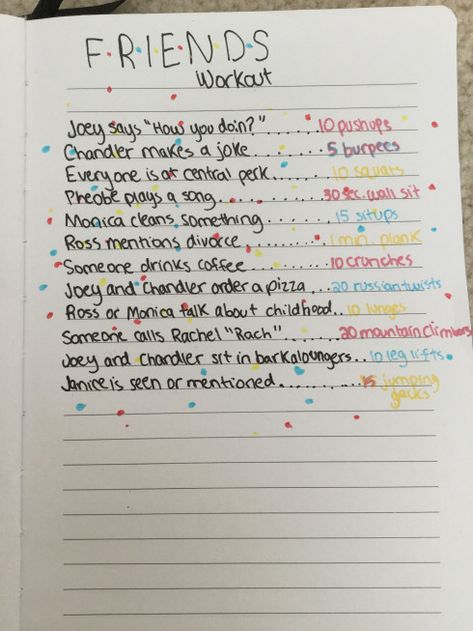 F·R·I·E·N·D·S
Workout
Joey says "How you doin?"......10 pushups
Chandler makes a joke........5 burpees
Everyone is at central perk......10 squats
Pheobe plays a song............30 sec. wall sit
Monica cleans something.......15 situps
Ross mentions divorce..........1 min. plank
Someone drinks coffee..........10 crunches
Joey and Chandler order a pizza....20 russian twists
Ross or Monica talk about childhood..10 lunges
Someone calls Rachel "Rach".......20 mountain climbers
Joey and Chandler sit in barkaloungers..10 leg lifts
Janice is seen or mentioned...........15 jumping
jacks